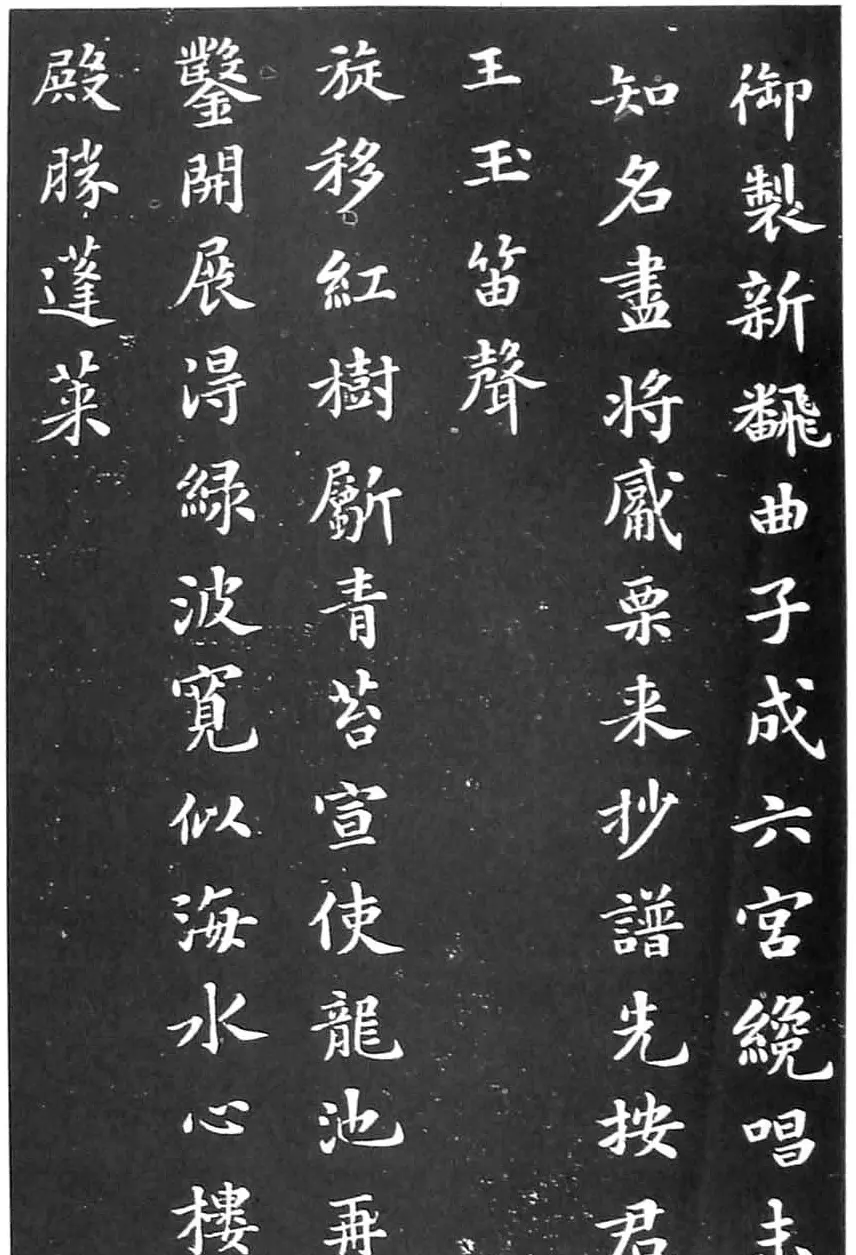 御製新飜曲子成六宮纔唱未
知名盡將觱栗来抄譜先按君
王玉笛聲
旋移紅樹斸青苔宣使龍池再
鑿開展得綠波寬似海水心樓
殿勝蓬莱